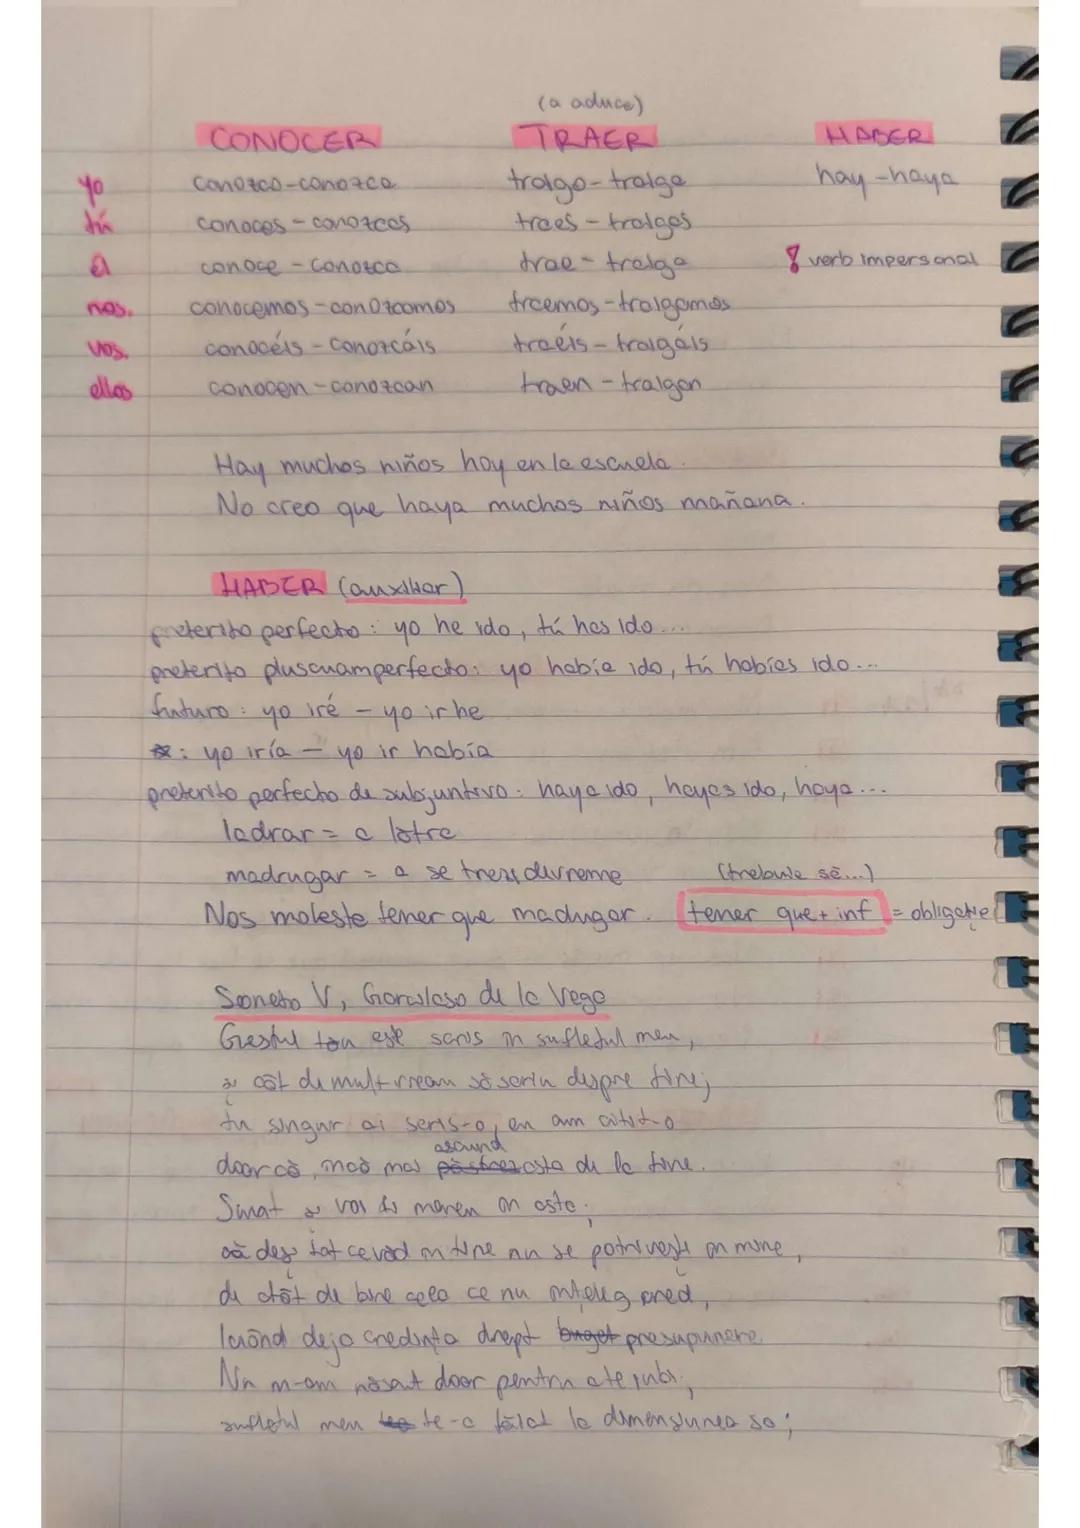 (a aduce)
CONOCER TRAER HABER
yo conozco - conozca traigo - traiga hay - haya
tú conoces - conozcas traes - traigas
él conoce - conozca trae - traiga ! verb impersonal
nos. conocemos - conozcamos traemos - traigamos
vos. conocéis - conozcáis traéis - traigáis
ellos conocen - conozcan traen - traigan
Hay muchos niños hoy en la escuela.
No creo que haya muchos niños mañana.
HABER (auxiliar)
preterito perfecto: yo he ido, tú has ido...
preterito pluscuamperfecto: yo había ido, tú habías ido...
futuro: yo iré - yo ir he
*: yo iría - yo ir había
preterito perfecto de subjuntivo: haya ido, hayas ido, haya...
ladrar = a lătra
madrugar = a se trezi devreme (trebuie să...)
Nos moleste tener que madugar. tener que + inf = obligație
Soneto V, Garcilaso de la Vega
Gestul tău este scris în sufletul meu,
și cât de mult vream să scriu despre tine;
tu singur ai scris-o, eu am citit-o
ascund
doar că, încă mă păstrez asta de la tine.
Sunt și voi fi mereu în asta;
că deși tot ce văd în tine nu se potrivește în mine,
de atât de bine cela ce nu înțeleg cred,
luând deja credința drept buget presupunere.
Nu m-am născut doar pentru a te iubi;
sufletul meu te-a tăiat la dimensiunea sa;